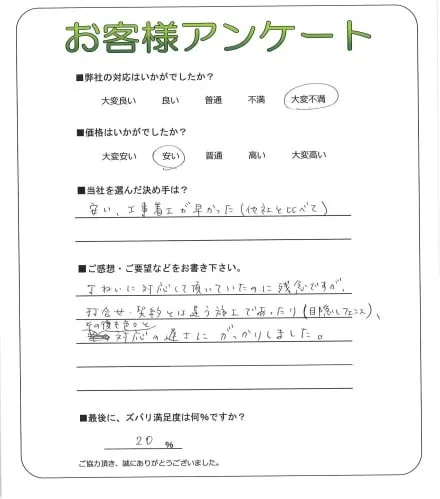 お客様アンケート
■弊社の対応はいかがでしたか?
大変良い 良い 普通 不満 大変不満
■価格はいかがでしたか?
大変安い 安い 普通 高い 大変高い
■当社を選んだ決め手は?
安い、工事着工が早かった(他社と比べて)
■ご感想・ご要望などをお書き下さい。
丁ねいに対応して頂いていたのに残念ですが、
打合せ・契約とは違う施工であったり(目隠しフェンス)、
その後も色々と
対応の遅さにがっかりしました。
■最後に、ズバリ満足度は何%ですか?
20 %
ご協力頂き、誠にありがとうございました。